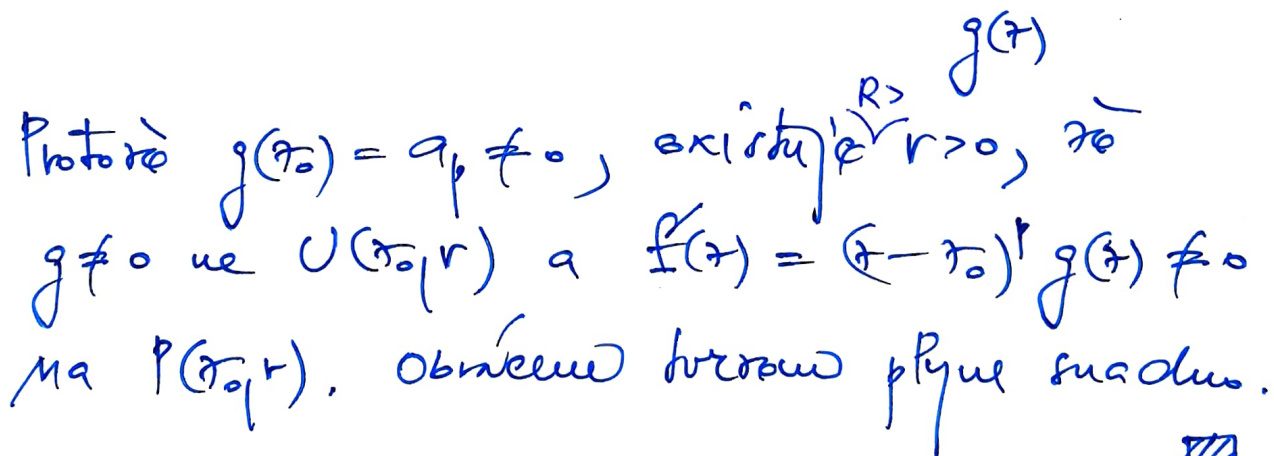 g(z)
Protože g(z₀) = aₚ ≠ 0, existuje R > r > 0, že
g ≠ 0 na U(z₀, r) a f(z) = (z - z₀)ᵖ g(z) ≠ 0
na P(z₀, r). Obrácené tvrzení plyne snadno.